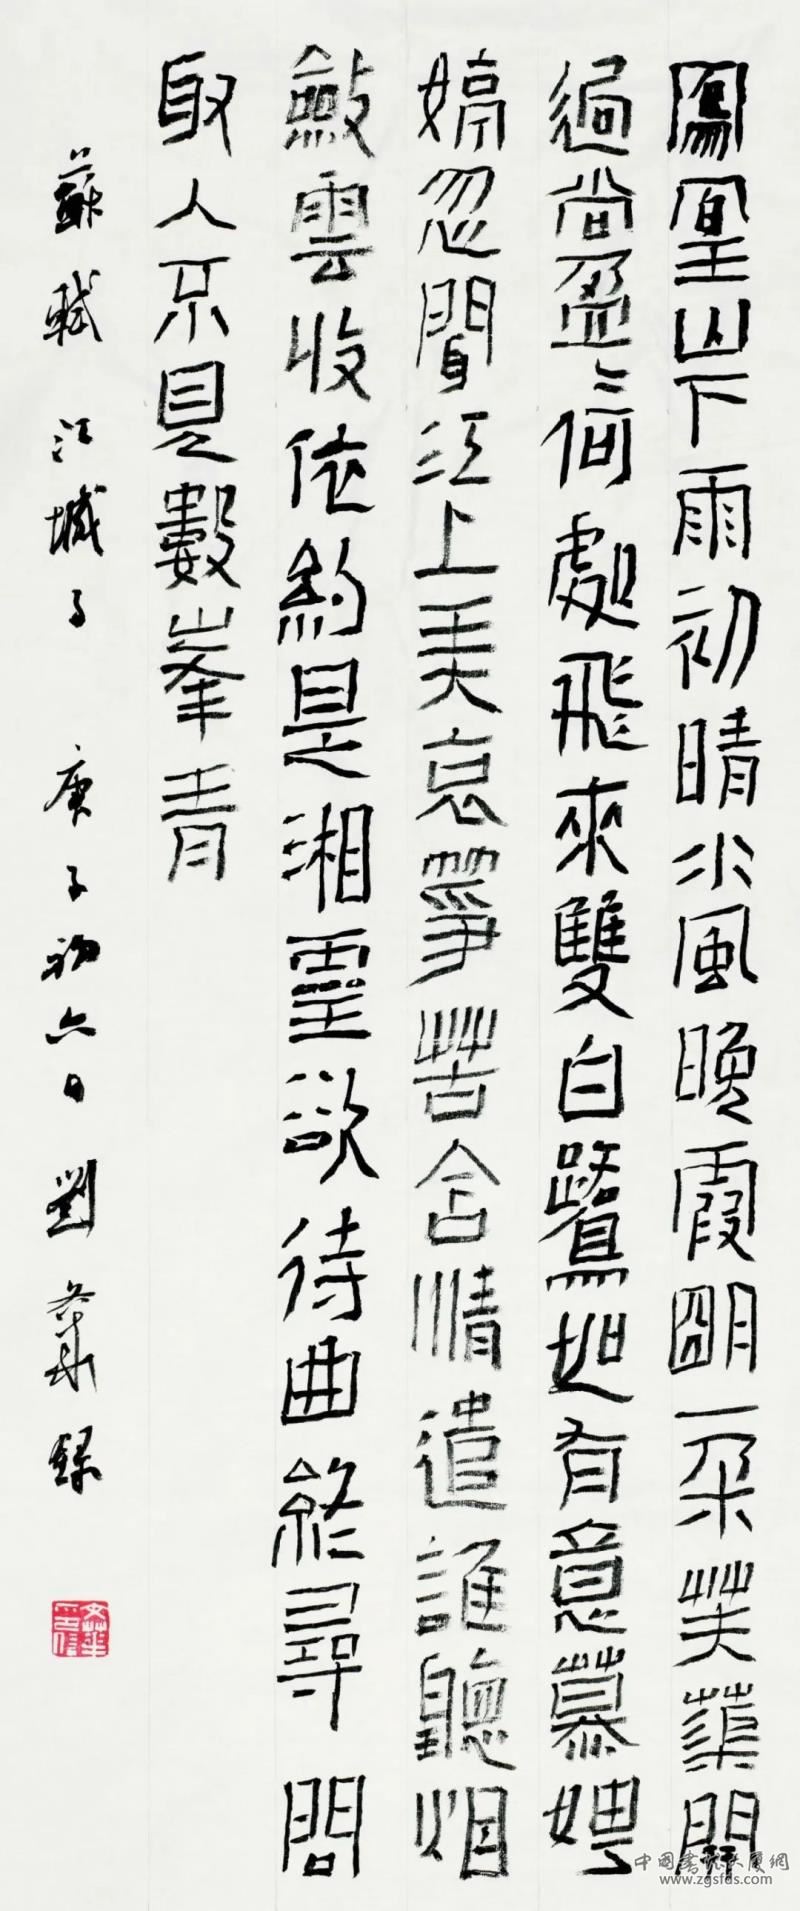 鳳凰山下雨初晴水風晚霞明一朵芙蕖開
過尚盈〻何處飛來雙白鷺如有意慕娉
婷忽聞江上弄哀箏苦含情遣誰聽烟
斂雲收依約是湘靈欲待曲終尋問
取人不見數峯青
蘇軾 江城子 庚子初六日 劉文華錄
中國書法大厦網
www.zgsfds.com